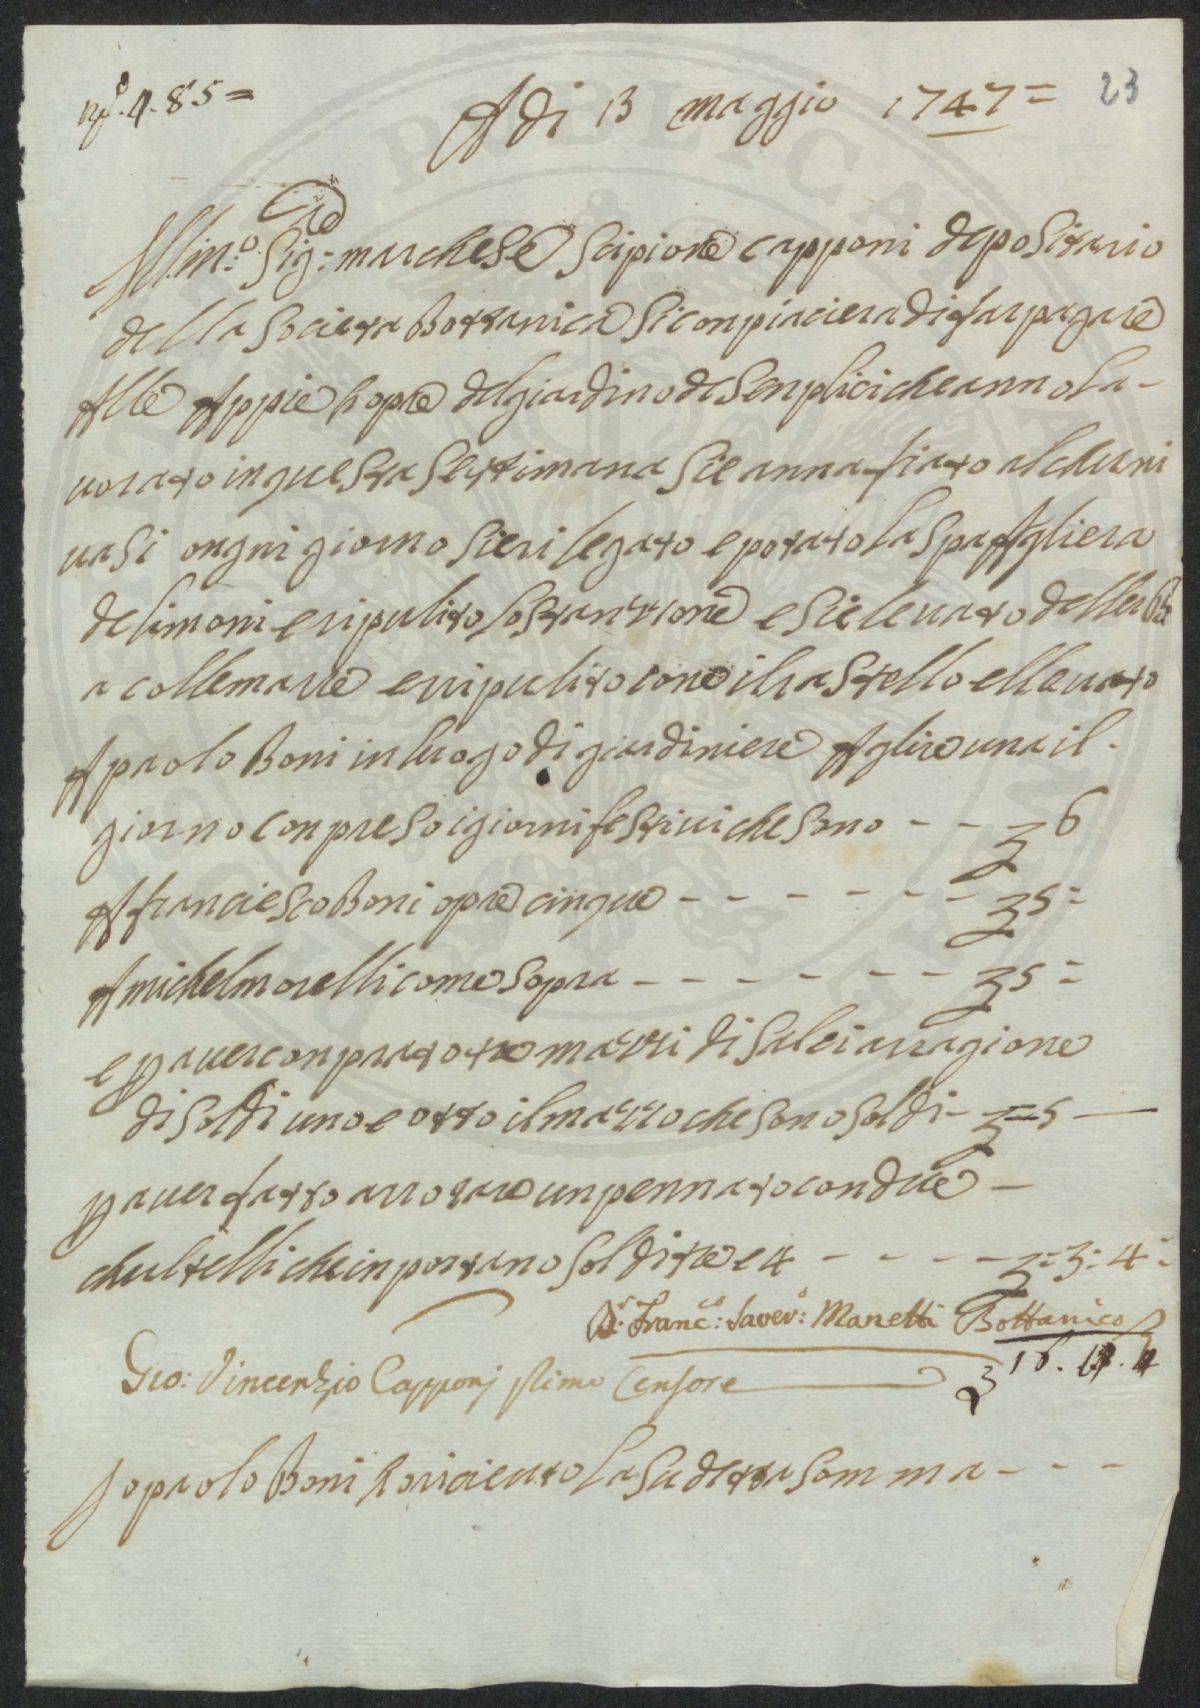 N.º 4. 85=
A di 13 maggio 1747=
23
Illm.º Sig:re marchese Scipione capponi depositario
della Societa Bottanica si conpiaciera di far pagare
Alle Appie hopre del giardino de Senplici che anno la-
uorato in questa settimana si e annafiato alchuni
uasi ongni giorno si e ri legato e potato la spagliera
de limoni e ripulito lo stanzzone e si e leuato dell erba
a colle marre e rripulito cone il rastello e lleuato
A paolo Boni in luogo di giardiniere A glire una il
giorno conpreso i giorni festiui che sono - - £ 6
A franciesco Boni opre cinque - - - - - - - £ 5 =
A michel morelli come sopra - - - - - - - £ 5 =
e p auer conprato tre mazzi di salci a rragione
di soldi uno e otto il mazzo che sono soldi - £ = 5 —
p auer fatto arrotare un pennato con due -
chultelli che inportano soldi tre e 4 - - - - - £ = 3 = 4 =
D.r Franc.co: Saver.o: Manetti Bottanico
£ 16. 13. 4
Gio: Vincenzio Capponj Primo Censore
Jo paolo Boni ho riceuuto la sudetta somma - - -